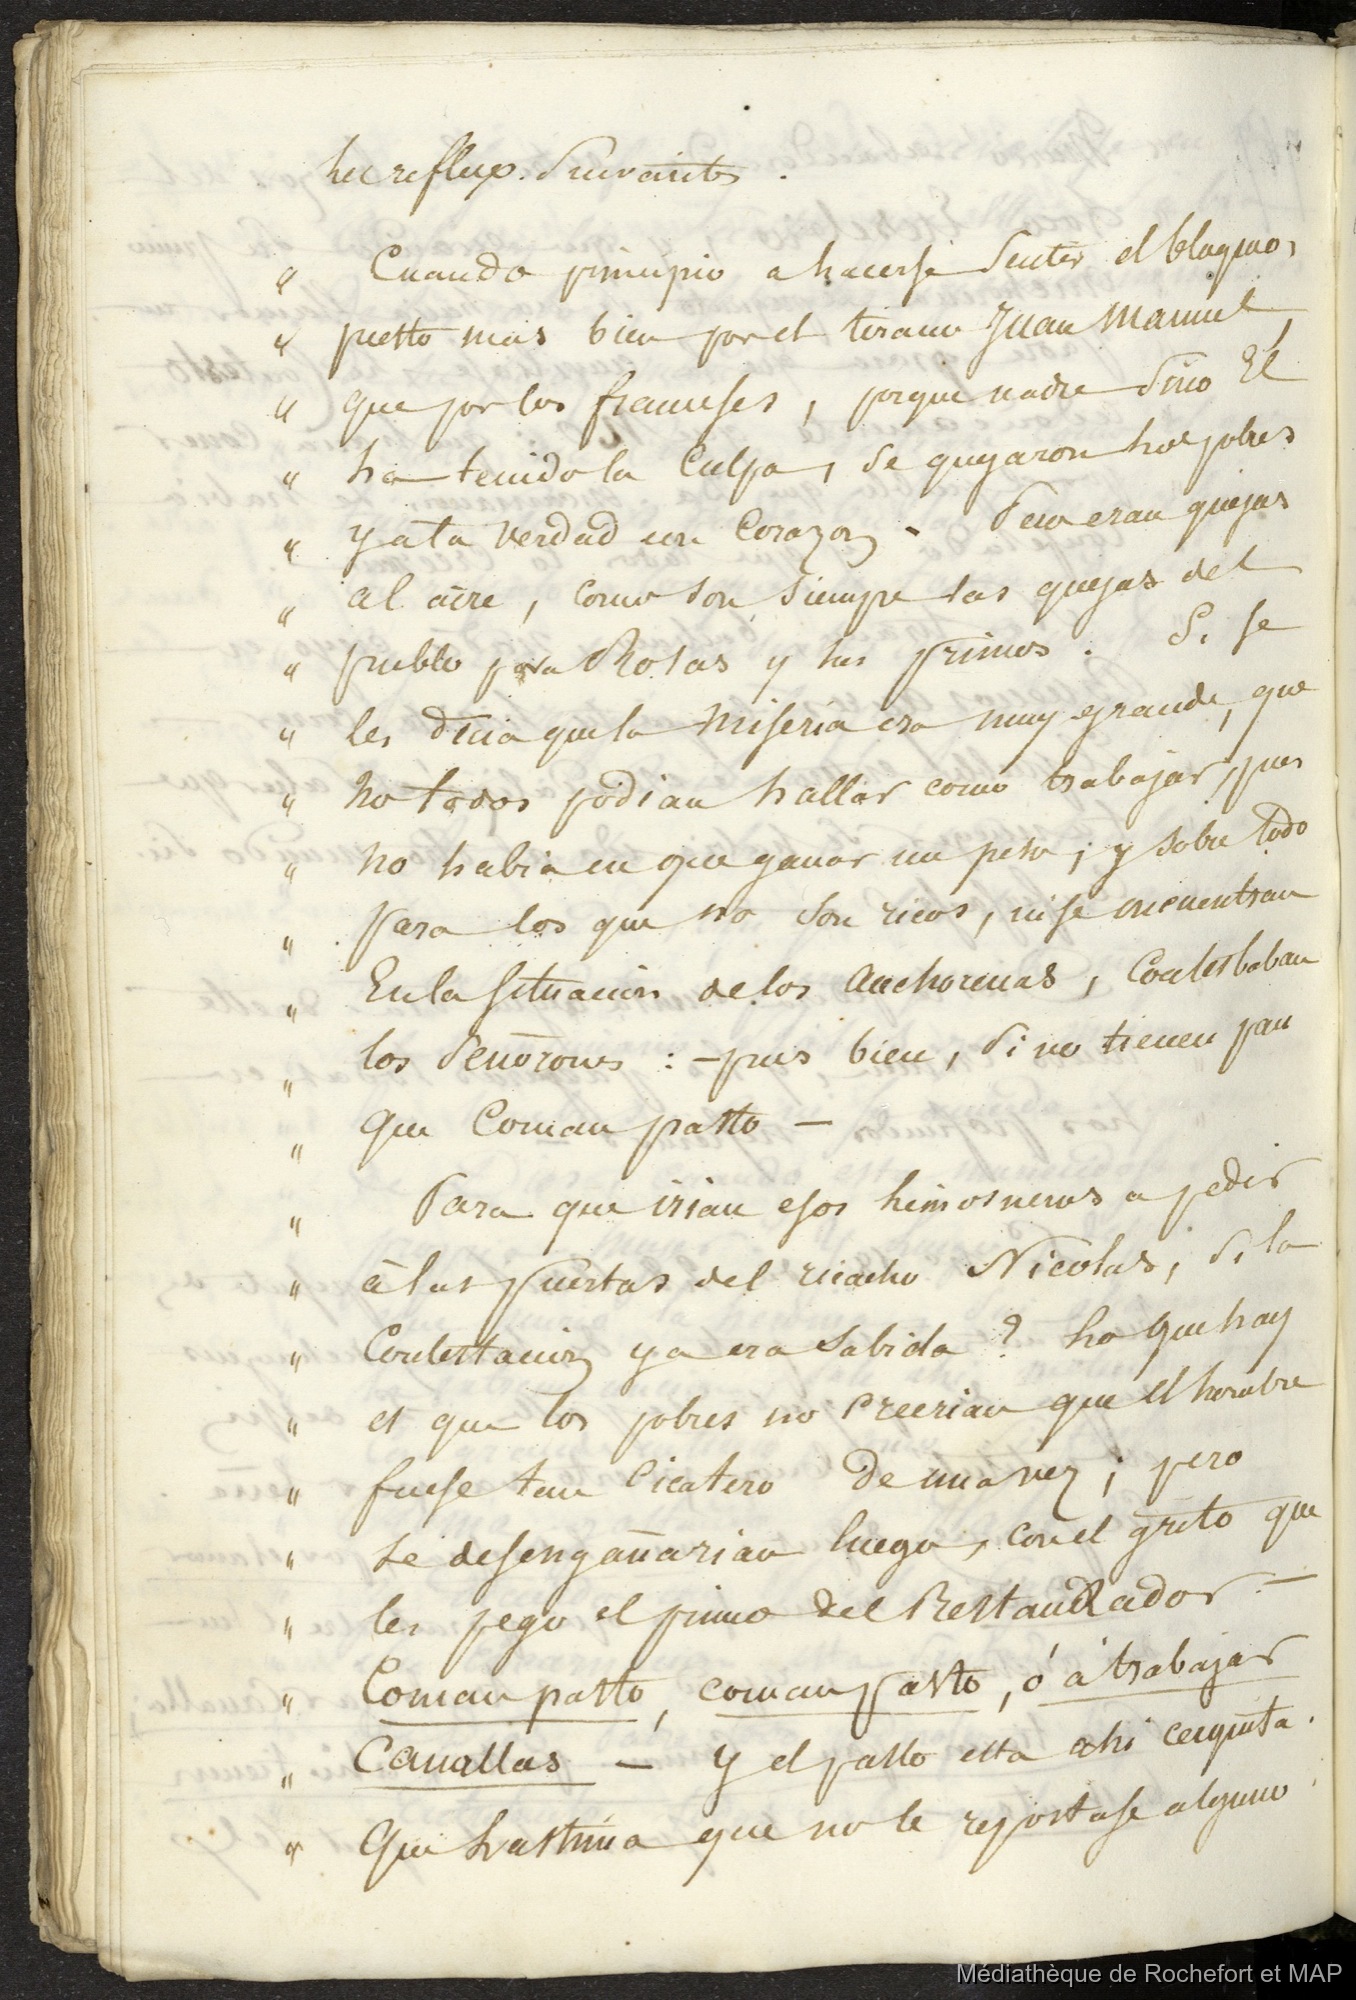 les reflex. Suivantes.
" Cuando principio a hacerse Sentir el bloqueo,
" puesto mas bien por el tirano Juan Manuel,
" que por los franceses, porque nadie Sino El
" ha tenido la Culpa, se quejaron los pobres
" y a la verdad con Corazon. Pero eran quejas
" al aire, como son siempre las quejas del
" pueblo para Rosas y sus primos. Si se
" les decia que la Miseria era muy grande, que
" no todos podian hallar como trabajar, pues
" no habia en que ganar un peso; y sobre todo
" para los que no son ricos, ni se encuentran
" En la Situacion de los Anchorenas, Contestaban
" los Señorones: — pues bien, Si no tienen pan
" que Coman pasto —
" Para que irian esos limosneros a pedir
" à las puertas del ricacho Nicolas, Si la
" Contestacion ya era Sabida? Lo que hay
" es que los pobres no Creerian que el hombre
" fuese tan Cicatero de una vez; pero
" se desengañarian luego, con el grito que
" les pego el primo del Restaurador —
" Coman pasto, coman pasto, ó à trabajar
" Canallas — Y el pasto esta ahi cerquita.
" Que Lastima que no le repostase alguno
Médiathèque de Rochefort et MAP